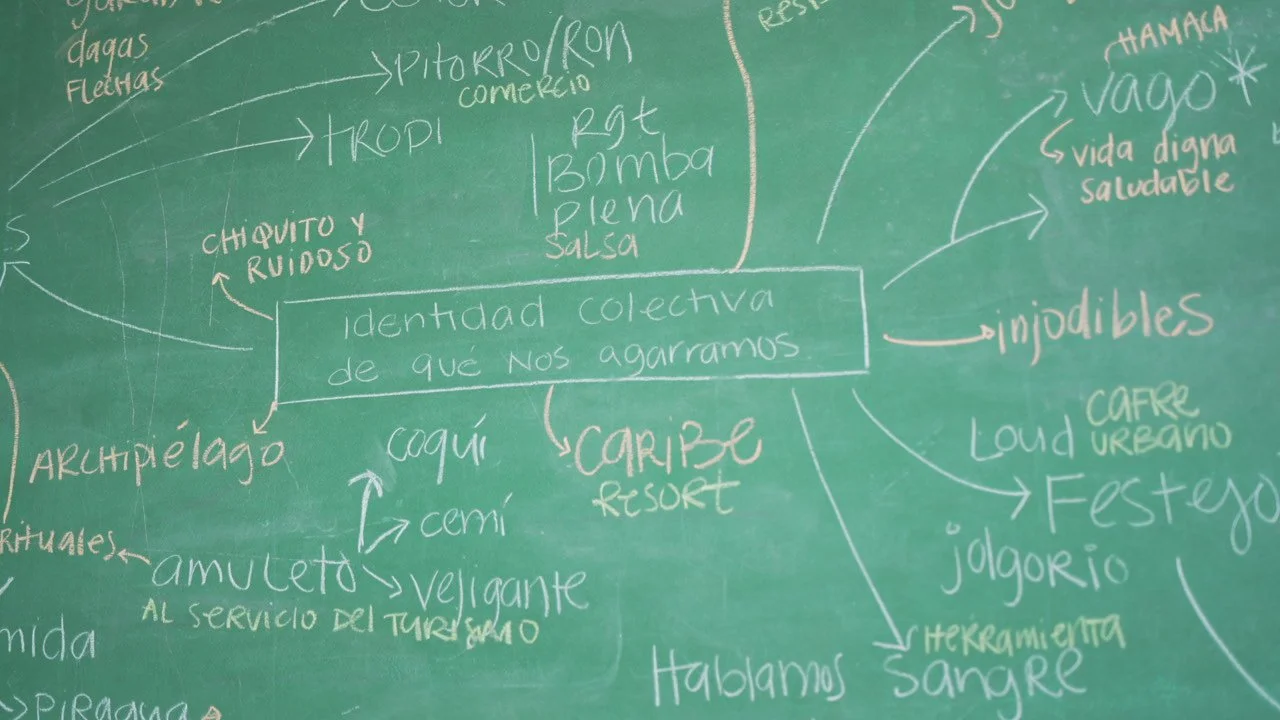 dagas
Flechas
Pitorro/Ron
comercio
tropi
Rgt
Bomba
plena
Salsa
HAMACA
vago*
vida digna
saludable
CHIQUITO Y
RUIDOSO
identidad colectiva
de qué nos agarramos
injodibles
ARCHIPIélago
coquí
cemí
CARIBE
RESORT
Loud
CAFRE
URBANO
Festejo
jolgorio
Rituales
amuleto
vejigante
AL SERVICIO DEL TURISMO
HERRAMIENTA
Hablamos
Sangre
PIRAGUA